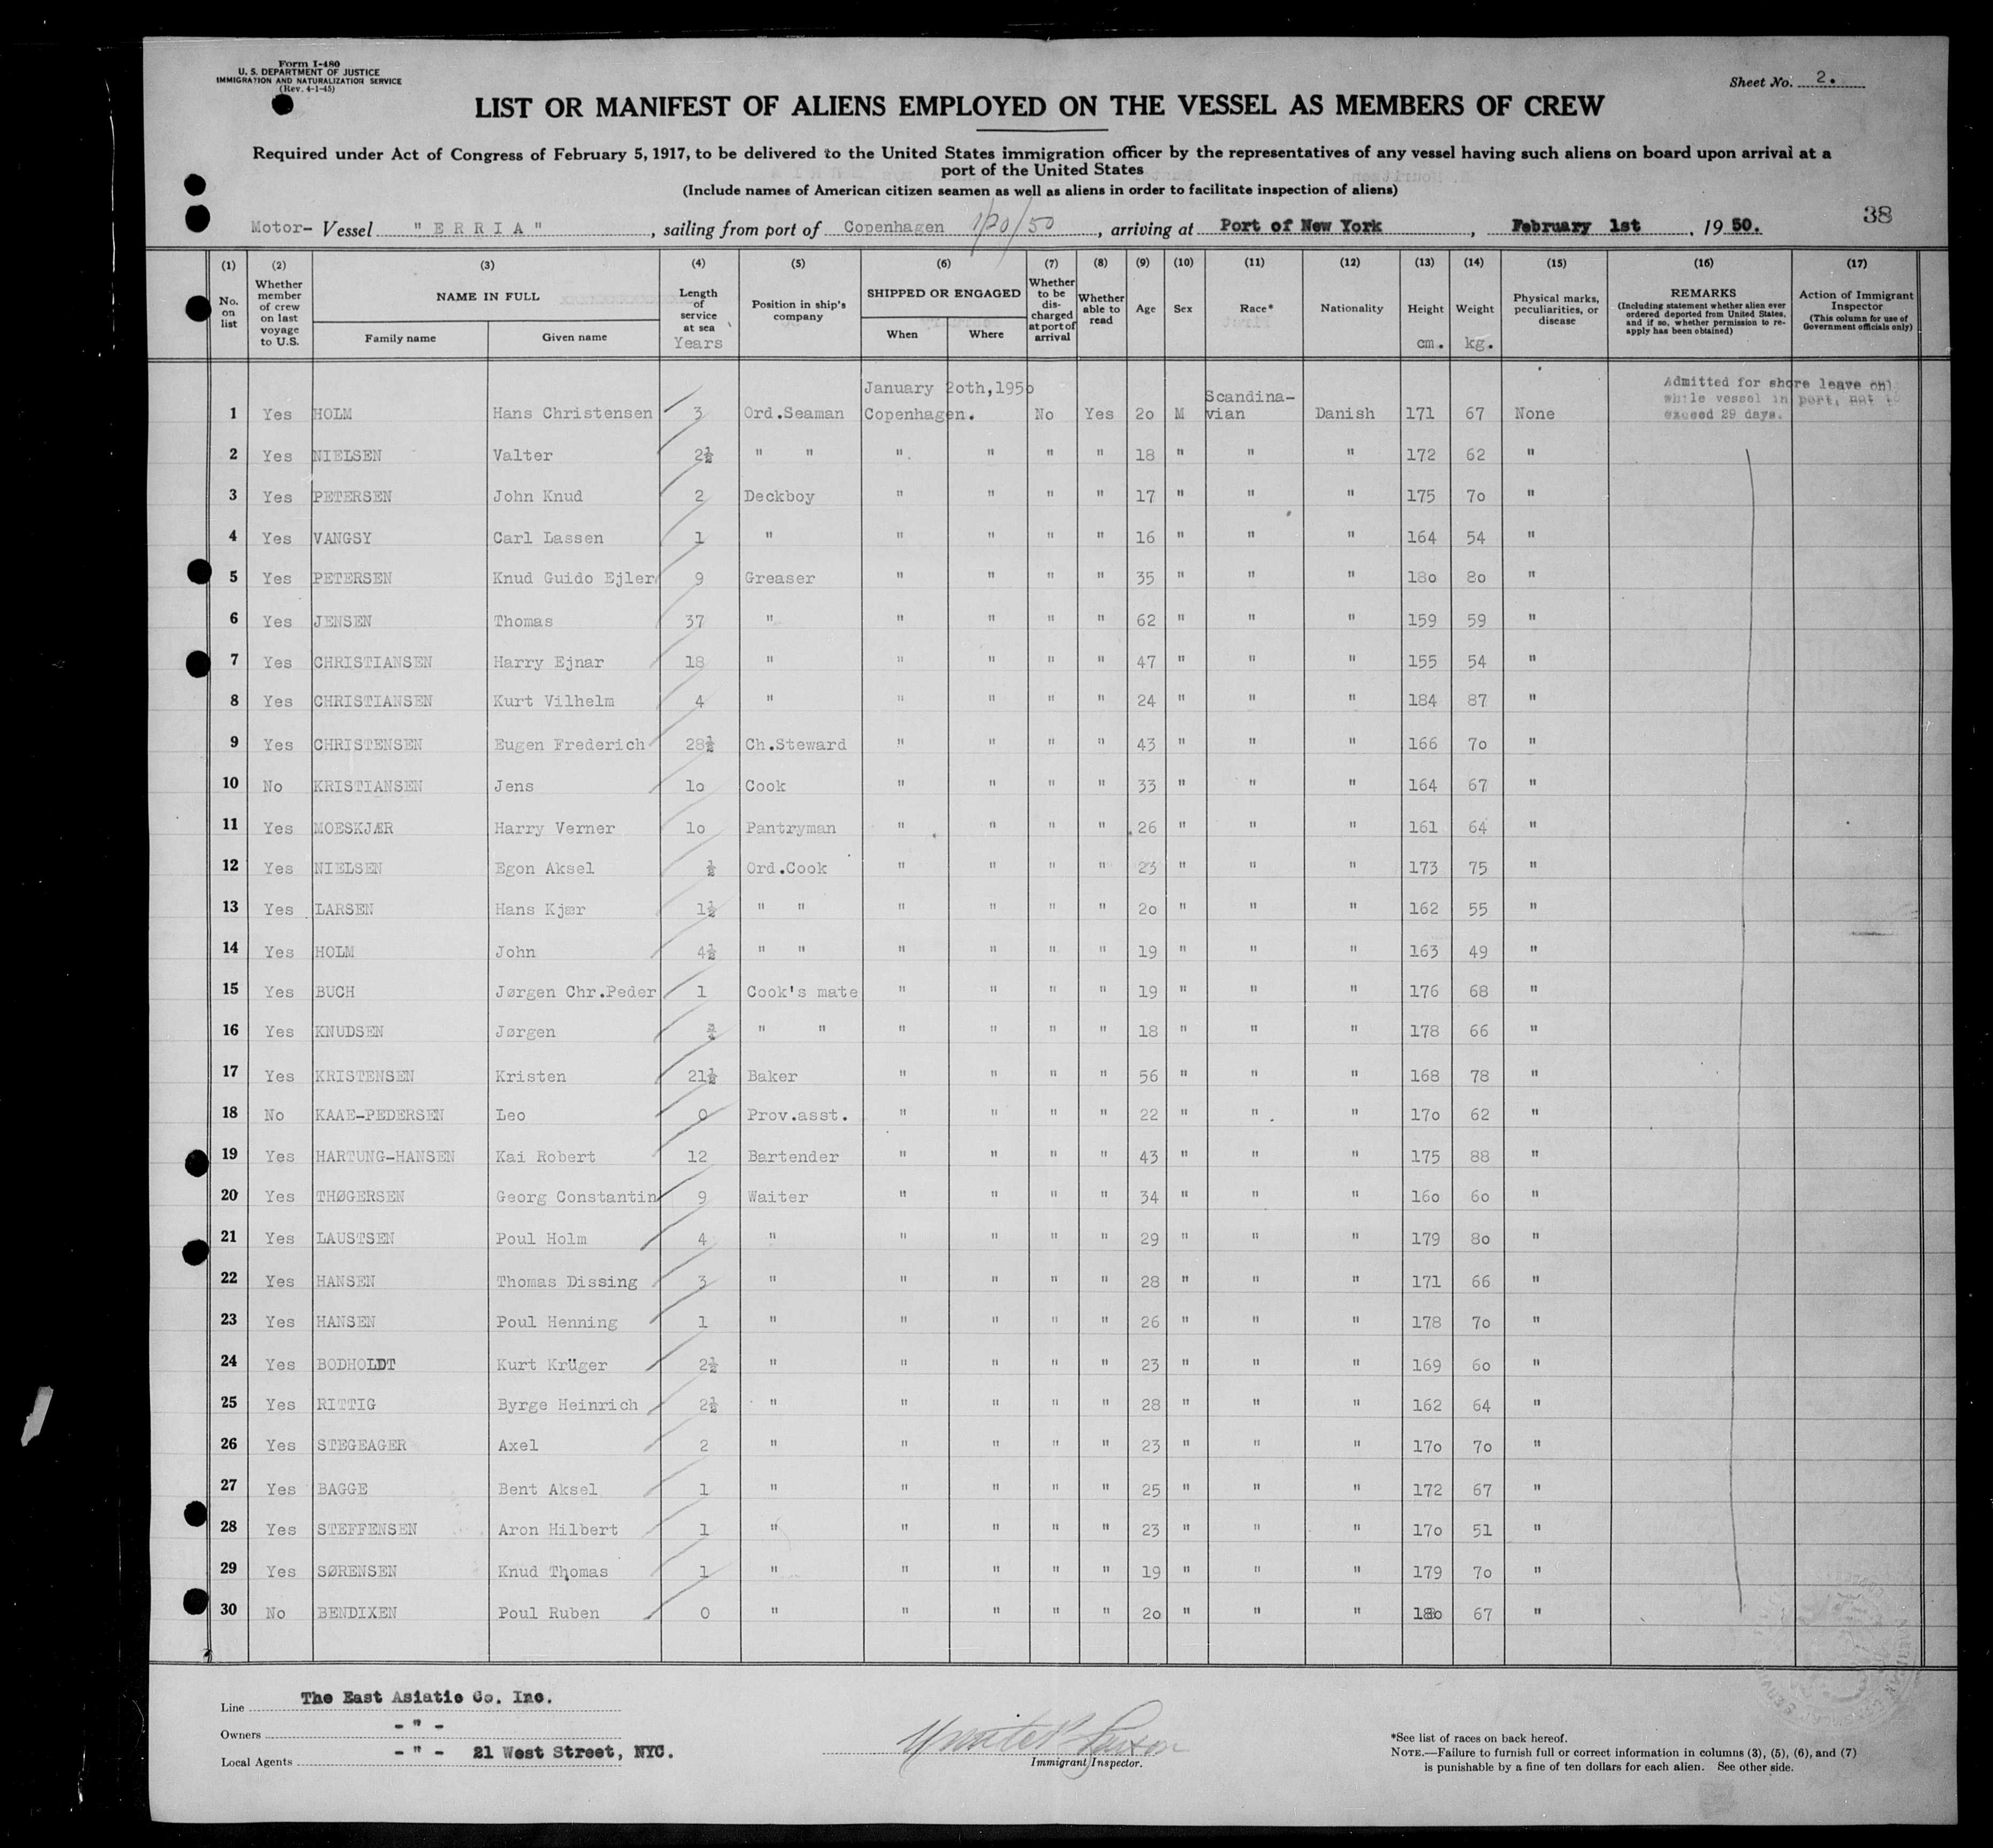 Form I-480
U. S. DEPARTMENT OF JUSTICE
IMMIGRATION AND NATURALIZATION SERVICE
(Rev. 4-1-45)
Sheet No. 2.
LIST OR MANIFEST OF ALIENS EMPLOYED ON THE VESSEL AS MEMBERS OF CREW
Required under Act of Congress of February 5, 1917, to be delivered to the United States immigration officer by the representatives of any vessel having such aliens on board upon arrival at a
port of the United States
(Include names of American citizen seamen as well as aliens in order to facilitate inspection of aliens)
38
Motor- Vessel "ERRIA", sailing from port of Copenhagen 1/20/50, arriving at Port of New York, February 1st, 1950.
(1) No. on list (2) Whether member of crew on last voyage to U.S. (3) NAME IN FULL Family name Given name (4) Length of service at sea Years (5) Position in ship's company (6) SHIPPED OR ENGAGED When Where (7) Whether to be discharged at port of arrival (8) Whether able to read (9) Age (10) Sex (11) Race* (12) Nationality (13) Height cm. (14) Weight kg. (15) Physical marks, peculiarities, or disease (16) REMARKS (Including statement whether alien ever ordered deported from United States, and if so, whether permission to reapply has been obtained) (17) Action of Immigrant Inspector (This column for use of Government officials only)
January 2oth,195o Scandina- Admitted for shore leave onl
while vessel in port, not to
1 Yes HOLM Hans Christensen 3 Ord.Seaman Copenhagen. No Yes 2o M vian Danish 171 67 None exceed 29 days.
2 Yes NIELSEN Valter 2½ " " " " " " 18 " " " 172 62 "
3 Yes PETERSEN John Knud 2 Deckboy " " " " 17 " " " 175 7o "
4 Yes VANGSY Carl Lassen 1 " " " " " 16 " " " 164 54 "
5 Yes PETERSEN Knud Guido Ejler 9 Greaser " " " " 35 " " " 18o 8o "
6 Yes JENSEN Thomas 37 " " " " " 62 " " " 159 59 "
7 Yes CHRISTIANSEN Harry Ejnar 18 " " " " " 47 " " " 155 54 "
8 Yes CHRISTIANSEN Kurt Vilhelm 4 " " " " " 24 " " " 184 87 "
9 Yes CHRISTENSEN Eugen Frederich 28½ Ch.Steward " " " " 43 " " " 166 7o "
10 No KRISTIANSEN Jens 1o Cook " " " " 33 " " " 164 67 "
11 Yes MOESKJÆR Harry Verner 1o Pantryman " " " " 26 " " " 161 64 "
12 Yes NIELSEN Egon Aksel ½ Ord.Cook " " " " 23 " " " 173 75 "
13 Yes LARSEN Hans Kjær 1½ " " " " " " 2o " " " 162 55 "
14 Yes HOLM John 4½ " " " " " " 19 " " " 163 49 "
15 Yes BUCH Jørgen Chr.Peder 1 Cook's mate " " " " 19 " " " 176 68 "
16 Yes KNUDSEN Jørgen ¾ " " " " " " 18 " " " 178 66 "
17 Yes KRISTENSEN Kristen 21½ Baker " " " " 56 " " " 168 78 "
18 No KAAE-PEDERSEN Leo 0 Prov.asst. " " " " 22 " " " 17o 62 "
19 Yes HARTUNG-HANSEN Kai Robert 12 Bartender " " " " 43 " " " 175 88 "
20 Yes THØGERSEN Georg Constantin 9 Waiter " " " " 34 " " " 16o 6o "
21 Yes LAUSTSEN Poul Holm 4 " " " " " 29 " " " 179 8o "
22 Yes HANSEN Thomas Dissing 3 " " " " " 28 " " " 171 66 "
23 Yes HANSEN Poul Henning 1 " " " " " 26 " " " 178 7o "
24 Yes BODHOLDT Kurt Krüger 2½ " " " " " 23 " " " 169 6o "
25 Yes RITTIG Byrge Heinrich 2½ " " " " " 28 " " " 162 64 "
26 Yes STEGEAGER Axel 2 " " " " " 23 " " " 17o 7o "
27 Yes BAGGE Bent Aksel 1 " " " " " 25 " " " 172 67 "
28 Yes STEFFENSEN Aron Hilbert 1 " " " " " 23 " " " 17o 51 "
29 Yes SØRENSEN Knud Thomas 1 " " " " " 19 " " " 179 7o "
30 No BENDIXEN Poul Ruben 0 " " " " " 2o " " " 18o 67 "
Line The East Asiatic Co. Inc.
Owners - " -
Local Agents - " - 21 West Street, NYC.
Immigrant Inspector.
*See list of races on back hereof.
NOTE.—Failure to furnish full or correct information in columns (3), (5), (6), and (7)
is punishable by a fine of ten dollars for each alien. See other side.